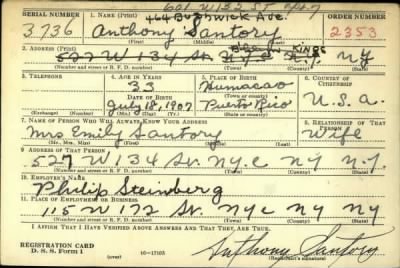 601 W 132 ST apt 7
SERIAL NUMBER 1. NAME (Print) ORDER NUMBER
464 Bushwick Ave.
3736 Anthony Santory 2353
(First) (Middle) (Last)
2. ADDRESS (Print)
527 W 134 St. N.Y.C. N.Y. N.Y.
Kings
(Number and street or R. F. D. number) (Town) (County) (State)
3. TELEPHONE 4. AGE IN YEARS 5. PLACE OF BIRTH 6. COUNTRY OF CITIZENSHIP
33 Humacao
DATE OF BIRTH (Town or county)
July 18, 1907 Puerto Rico U.S.A.
(Exchange) (Number) (Mo.) (Day) (Yr.) (State or country)
7. NAME OF PERSON WHO WILL ALWAYS KNOW YOUR ADDRESS 8. RELATIONSHIP OF THAT PERSON
Mrs Emily Santory Wife
(Mr., Mrs., Miss) (First) (Middle) (Last)
9. ADDRESS OF THAT PERSON
527 W 134 St. N.Y.C N.Y N.Y.
(Number and street or R. F. D. number) (Town) (County) (State)
10. EMPLOYER'S NAME
Philip Steinberg
11. PLACE OF EMPLOYMENT OR BUSINESS
115 W 172 St. N.Y.C N.Y N.Y
(Number and street or R. F. D. number) (Town) (County) (State)
I AFFIRM THAT I HAVE VERIFIED ABOVE ANSWERS AND THAT THEY ARE TRUE.
REGISTRATION CARD
D. S. S. Form 1 (over) 16—17105 Anthony Santory
(Registrant's signature)